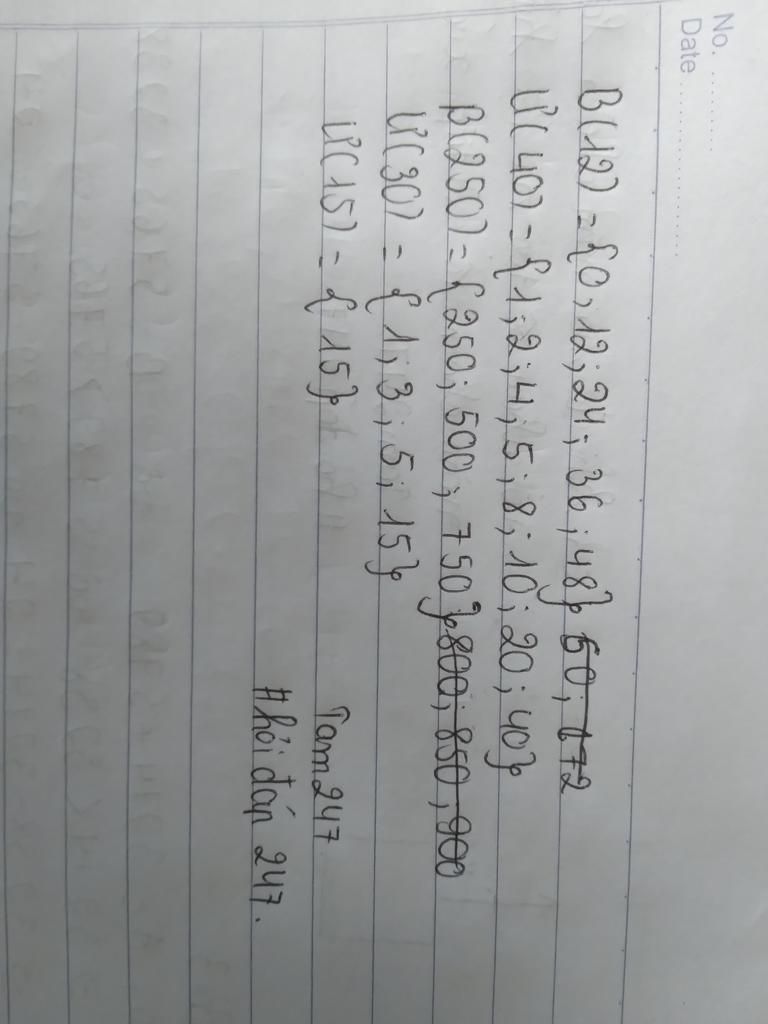 No. ..........
Date ......................
B(12) = {0; 12; 24; 36; 48} 60; 172
Ư(40) = {1; 2; 4; 5; 8; 10; 20; 40}
B(250) = {250; 500; 750} 800; 850; 900
Ư(30) = {1; 3; 5; 15}
Ư(15) = {15}
Tam247
#hỏi đáp 247.